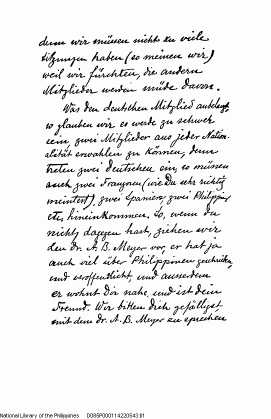 denn wir müssen nicht zu viele
sitzungen haben (so meinen wir)
weil wir fürchten, die andern
Mitglieder werden müde davon.
Was den deutschen Mitglied anbelangt
so glauben wir es werde zu schwer
sein, zwei Mitglieder aus jeder Natio-
alität erwählen zu können, denn
treten zwei Deutschen ein, so müssen
auch zwei Franzosen (wie Du sehr richtig
meintest), zwei Spanier, zwei Philippin
etc. hineinkommen. So, wenn du
nichts dagegen hast, ziehen wir
den dr. A. B. Meyer vor, er hat ja
auch viel über Philippinen geschrieben,
und veröffentlicht, und ausserdem
er wohnt Dir nahe, und ist dein
Freund. Wir bitten dich gefälligst
mit dem dr. A. B. Meyer zu sprechen
National Library of the Philippines